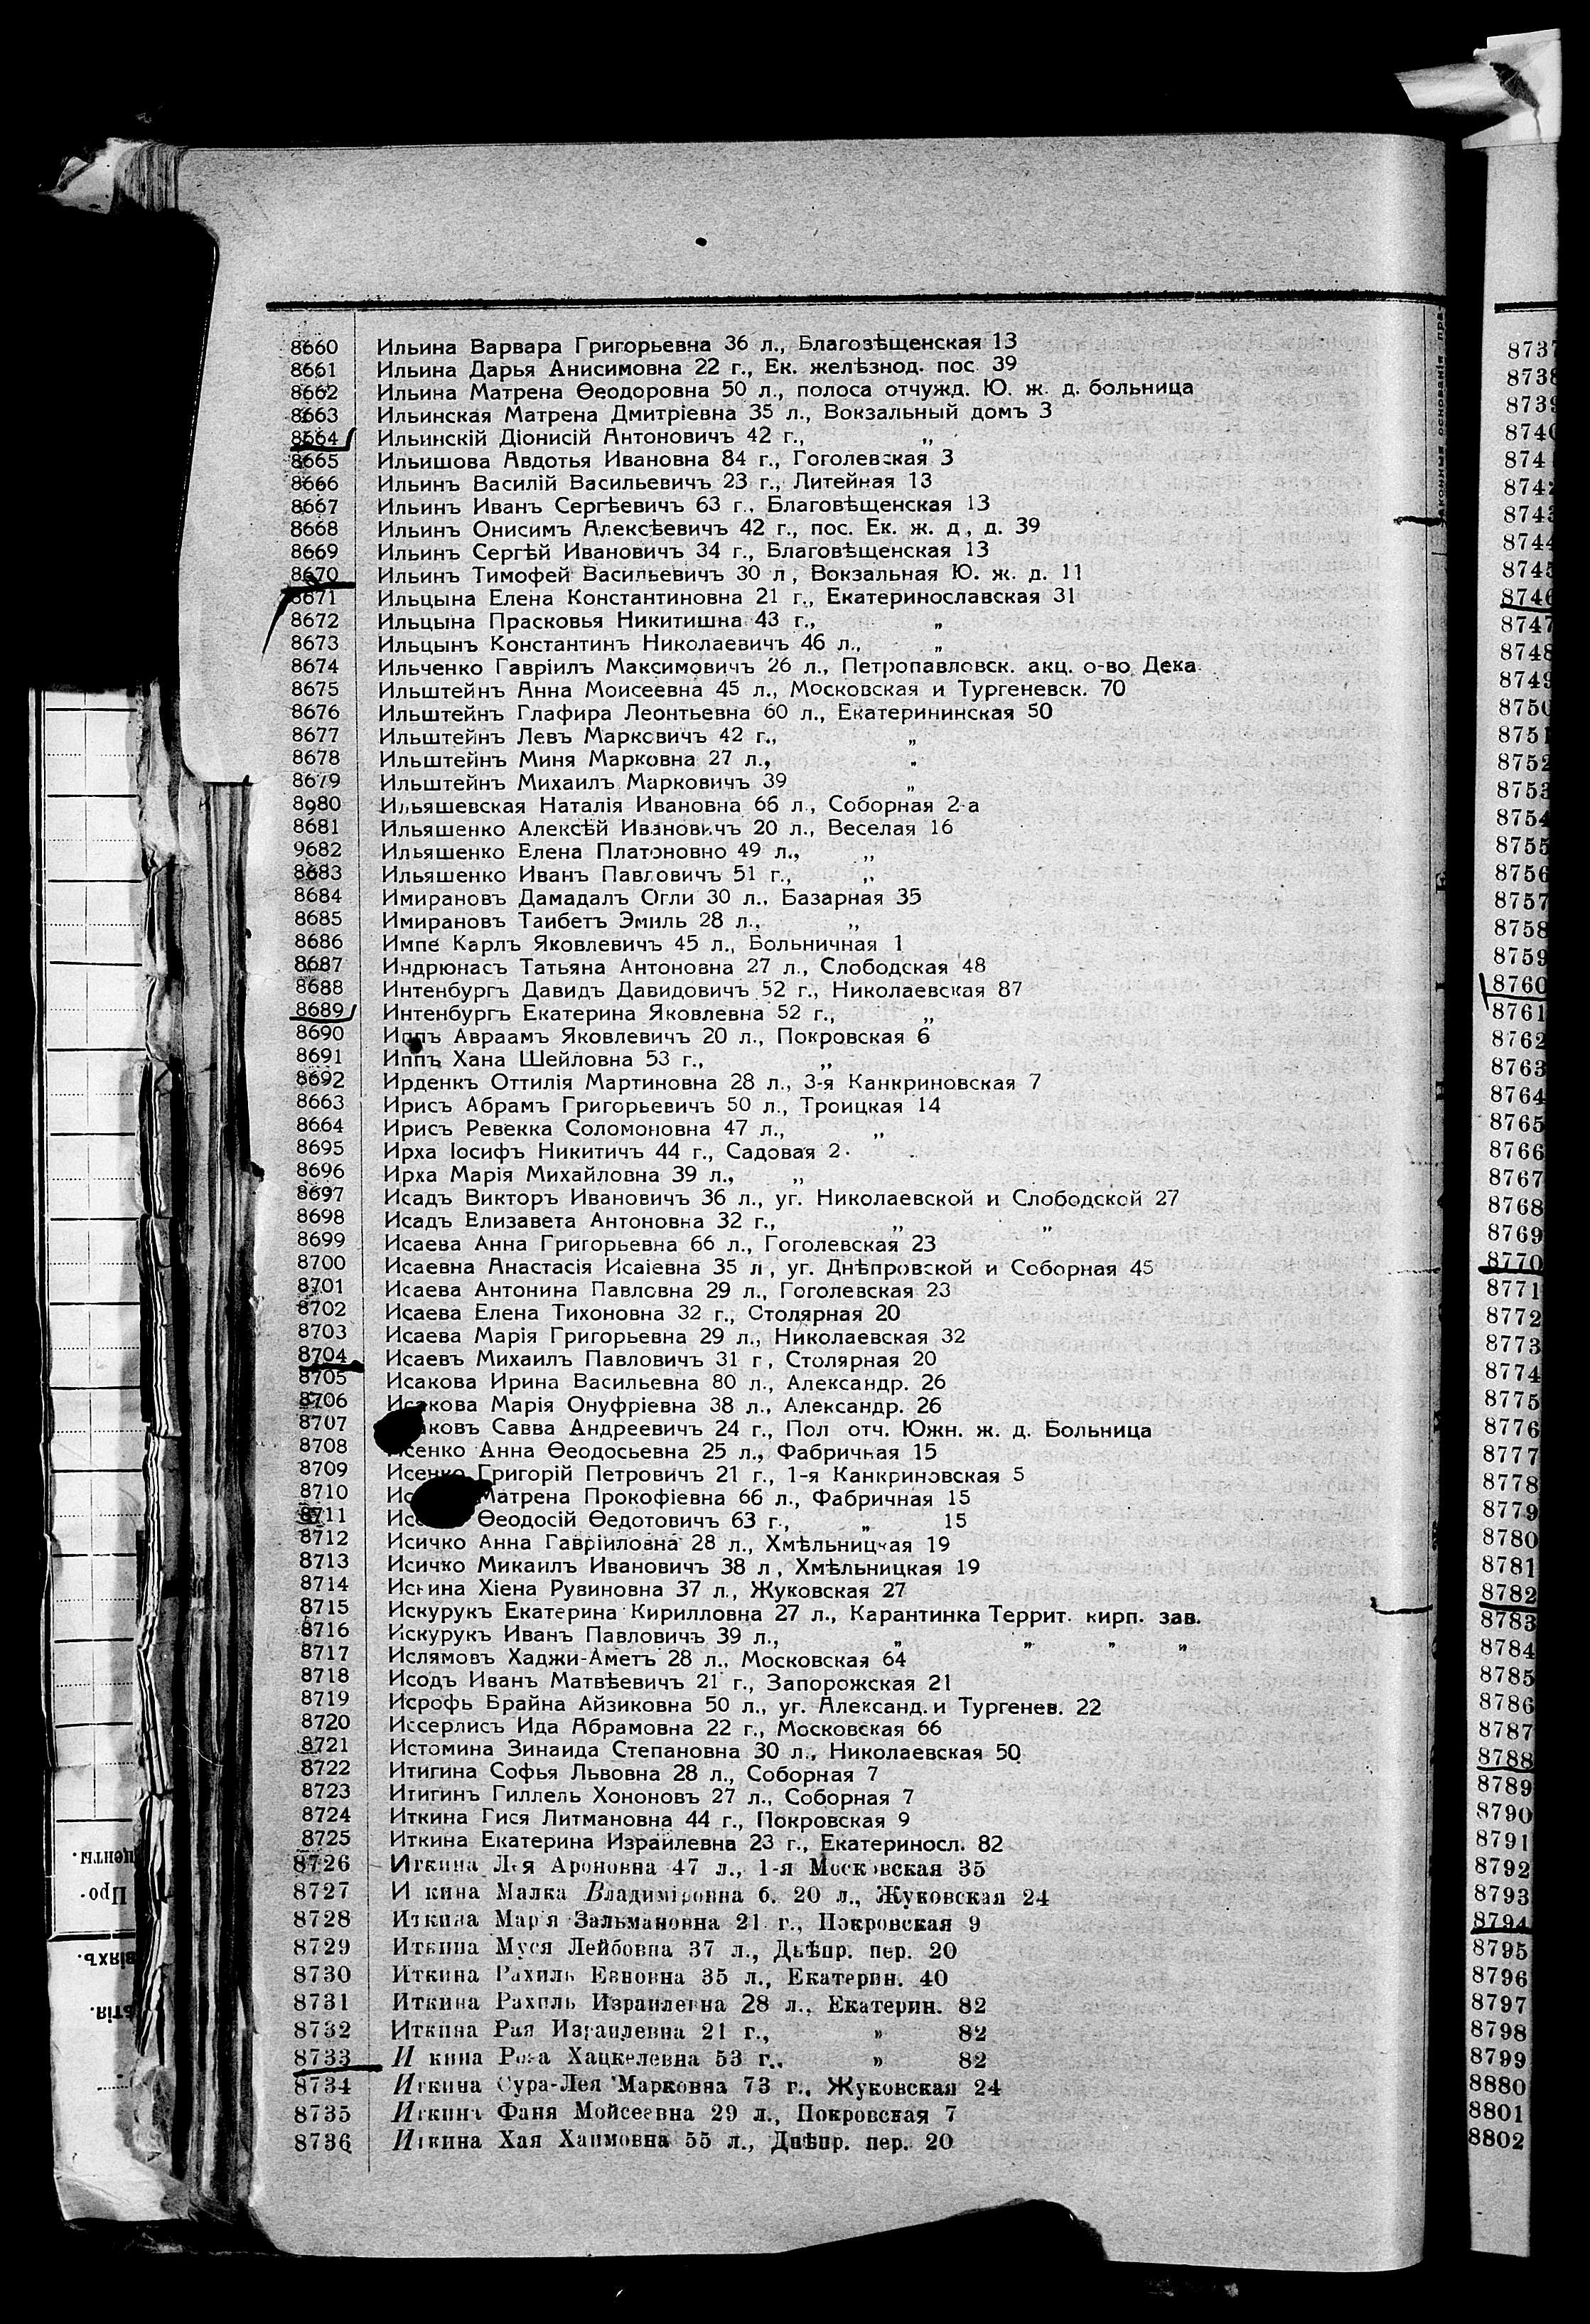 8660 Ильина Варвара Григорьевна 36 л., Благовѣщенская 13
8661 Ильина Дарья Анисимовна 22 г., Ек. желѣзнод. пос. 39
8662 Ильина Матрена Ѳеодоровна 50 л., полоса отчужд. Ю. ж. д. больница
8663 Ильинская Матрена Дмитріевна 35 л., Вокзальный домъ 3
8664 Ильинскій Діонисій Антоновичъ 42 г., „
8665 Ильишова Авдотья Ивановна 84 г., Гоголевская 3
8666 Ильинъ Василій Васильевичъ 23 г., Литейная 13
8667 Ильинъ Иванъ Сергѣевичъ 63 г., Благовѣщенская 13
8668 Ильинъ Онисимъ Алексѣевичъ 42 г., пос. Ек. ж. д., д. 39
8669 Ильинъ Сергѣй Ивановичъ 34 г., Благовѣщенская 13
8670 Ильинъ Тимофей Васильевичъ 30 л., Вокзальная Ю. ж. д. 11
8671 Ильцына Елена Константиновна 21 г., Екатеринославская 31
8672 Ильцына Прасковья Никитишна 43 г., „
8673 Ильцынъ Константинъ Николаевичъ 46 л., „
8674 Ильченко Гавріилъ Максимовичъ 26 л., Петропавловск. акц. о-во Дека
8675 Ильштейнъ Анна Моисеевна 45 л., Московская и Тургеневск. 70
8676 Ильштейнъ Глафира Леонтьевна 60 л., Екатерининская 50
8677 Ильштейнъ Левъ Марковичъ 42 г., „
8678 Ильштейнъ Миня Марковна 27 л., „
8679 Ильштейнъ Михаилъ Марковичъ 39 „
8980 Ильяшевская Наталія Ивановна 66 л., Соборная 2-а
8681 Ильяшенко Алексѣй Ивановичъ 20 л., Веселая 16
9682 Ильяшенко Елена Платоновно 49 л., „
8683 Ильяшенко Иванъ Павловичъ 51 г., „
8684 Имирановъ Дамадалъ Огли 30 л., Базарная 35
8685 Имирановъ Таибетъ Эмиль 28 л., „
8686 Импе Карлъ Яковлевичъ 45 л., Больничная 1
8687 Индрюнасъ Татьяна Антоновна 27 л., Слободская 48
8688 Интенбургъ Давидъ Давидовичъ 52 г., Николаевская 87
8689 Интенбургъ Екатерина Яковлевна 52 г., „
8690 Иппъ Авраамъ Яковлевичъ 20 л., Покровская 6
8691 Иппъ Хана Шейловна 53 г., „
8692 Ирденкъ Оттилія Мартиновна 28 л., 3-я Канкриновская 7
8663 Ирисъ Абрамъ Григорьевичъ 50 л., Троицкая 14
8664 Ирисъ Ревекка Соломоновна 47 л., „
8695 Ирха Іосифъ Никитичъ 44 г., Садовая 2
8696 Ирха Марія Михайловна 39 л., „
8697 Исадъ Викторъ Ивановичъ 36 л., уг. Николаевской и Слободской 27
8698 Исадъ Елизавета Антоновна 32 г., „ „
8699 Исаева Анна Григорьевна 66 л., Гоголевская 23
8700 Исаевна Анастасія Исаіевна 35 л., уг. Днѣпровской и Соборная 45
8701 Исаева Антонина Павловна 29 л., Гоголевская 23
8702 Исаева Елена Тихоновна 32 г., Столярная 20
8703 Исаева Марія Григорьевна 29 л., Николаевская 32
8704 Исаевъ Михаилъ Павловичъ 31 г., Столярная 20
8705 Исакова Ирина Васильевна 80 л., Александр. 26
8706 Исакова Марія Онуфріевна 38 л., Александр. 26
8707 аковъ Савва Андреевичъ 24 г., Пол отч. Южн. ж. д. Больница
8708 Исенко Анна Ѳеодосьевна 25 л., Фабричная 15
8709 Исенко Григорій Петровичъ 21 г., 1-я Канкриновская 5
8710 Ис Матрена Прокофіевна 66 л., Фабричная 15
8711 Исе Ѳеодосій Ѳедотовичъ 63 г., „ 15
8712 Исичко Анна Гавріиловна 28 л., Хмѣльницкая 19
8713 Исичко Микаилъ Ивановичъ 38 л., Хмѣльницкая 19
8714 Искина Хіена Рувиновна 37 л., Жуковская 27
8715 Искурукъ Екатерина Кирилловна 27 л., Карантинка Террит. кирп. зав.
8716 Искурукъ Иванъ Павловичъ 39 л., „ „ „ „
8717 Ислямовъ Хаджи-Аметъ 28 л., Московская 64
8718 Исодъ Иванъ Матвѣевичъ 21 г., Запорожская 21
8719 Исрофь Брайна Айзиковна 50 л., уг. Александ. и Тургенев. 22
8720 Иссерлисъ Ида Абрамовна 22 г., Московская 66
8721 Истомина Зинаида Степановна 30 л., Николаевская 50
8722 Итигина Софья Львовна 28 л., Соборная 7
8723 Итигинъ Гиллель Хононовъ 27 л., Соборная 7
8724 Иткина Гися Литмановна 44 г., Покровская 9
8725 Иткина Екатерина Израилевна 23 г., Екатериносл. 82
8726 Иткина Лея Ароновна 47 л., 1-я Московская 35
8727 И кина Малка Владиміровна б. 20 л., Жуковская 24
8728 Иткина Марія Зальмановна 21 г., Покровская 9
8729 Иткина Муся Лейбовна 37 л., Днѣпр. пер. 20
8730 Иткина Рахиль Евновна 35 л., Екатерин. 40
8731 Иткина Рахиль Израилевна 28 л., Екатерин. 82
8732 Иткина Рая Израилевна 21 г., » 82
8733 И кина Роза Хацкелевна 53 г., » 82
8734 Иткина Сура-Лея Марковна 73 г., Жуковская 24
8735 Иткина Фаня Мойсеевна 29 л., Покровская 7
8736 Иткина Хая Хаимовна 55 л., Днѣпр. пер. 20
8737
8738
8739
8740
874
8742
8743
8744
8745
8746
8747
8748
8749
8750
8751
8752
8753
8754
8755
8756
8757
8758
8759
8760
8761
8762
8763
8764
8765
8766
8767
8768
8769
8770
8771
8772
8773
8774
8775
8776
8777
8778
8779
8780
8781
8782
8783
8784
8785
8786
8787
8788
8789
8790
8791
8792
8793
8794
8795
8796
8797
8798
8799
8880
8801
8802